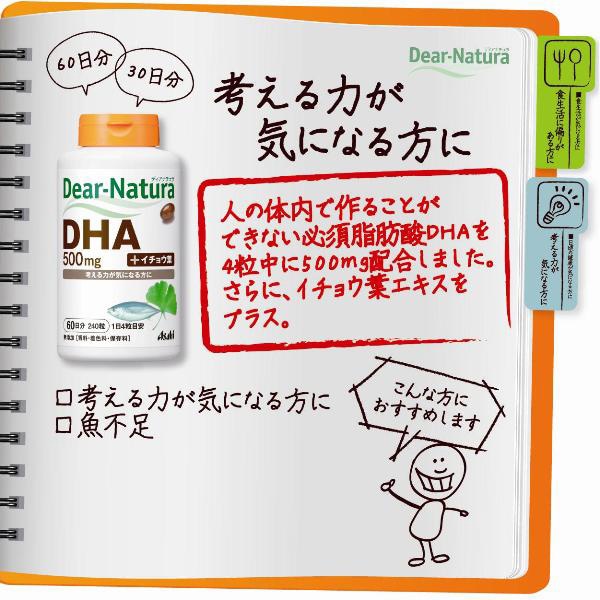 60日分
30日分
ディアナチュラ
Dear-Natura
考える力が
気になる方に
ディアナチュラ
Dear-Natura
DHA
500mg
+イチョウ葉
考える力が気になる方に
60日分 240粒 1日4粒目安
Asahi
無添加[香料・着色料・保存料]
人の体内で作ることが
できない必須脂肪酸DHAを
4粒中に500mg配合しました。
さらに、イチョウ葉エキスを
プラス。
□考える力が気になる方に
□魚不足
こんな方に
おすすめします
食生活に偏りが
ある方に
考える力が
気になる方に